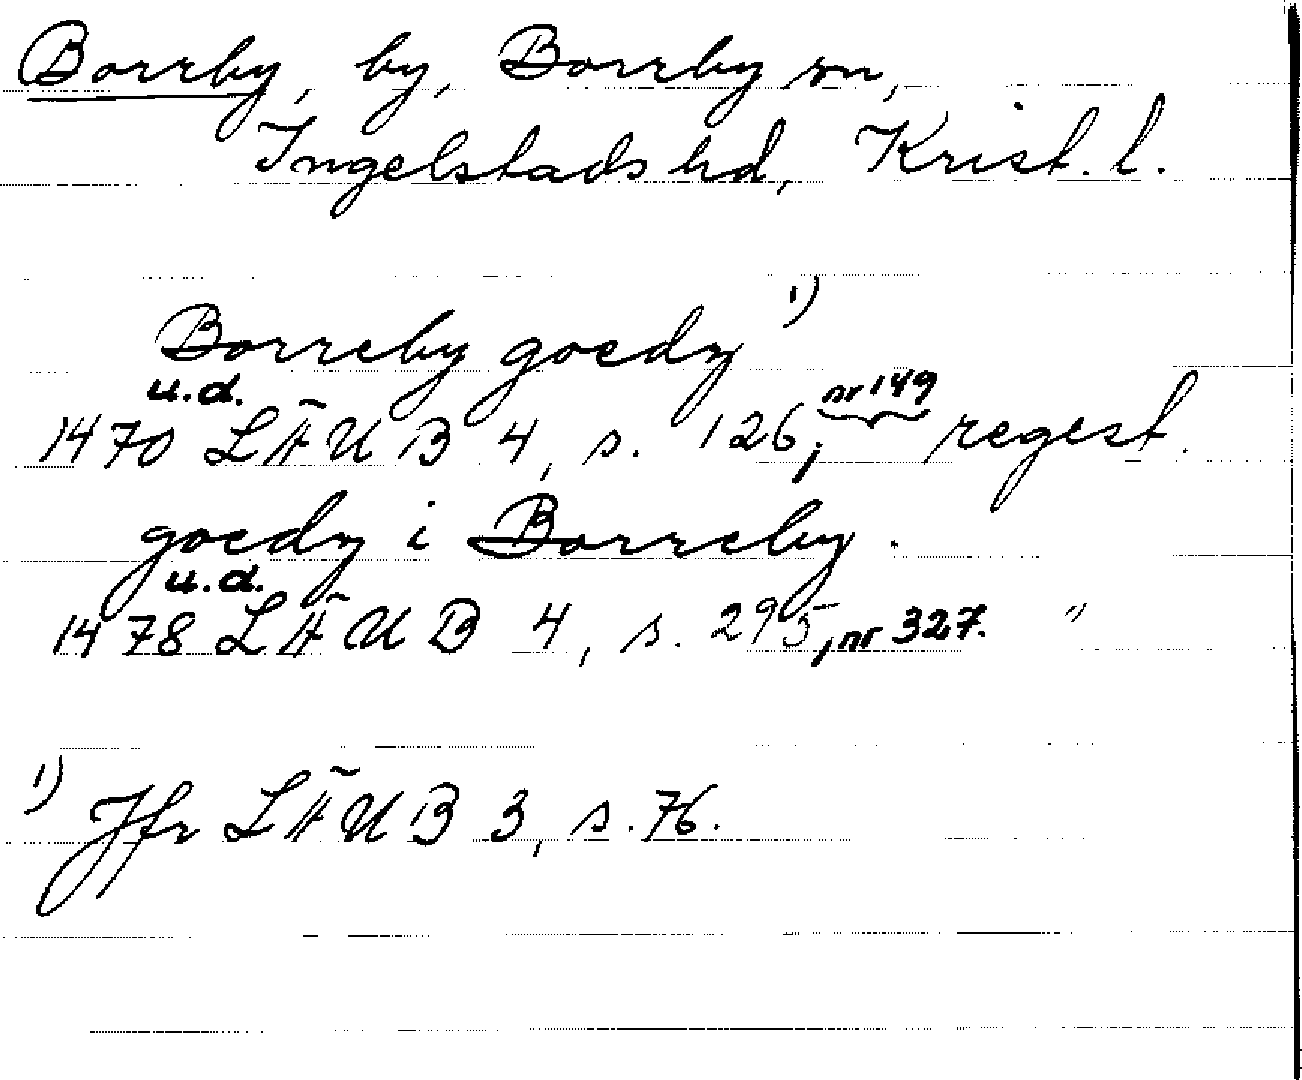 Borrby, by, Borrby sn,
Ingelstads hd, Krist. l.
Borreby goedz 1)
u.d. nr 149
1470 LÄUB 4, s. 126, regest.
goedz i Borreby.
u.d.
1478 LÄUB 4, s. 295, nr 327. "
1) Jfr LÄUB 3, s. 76.